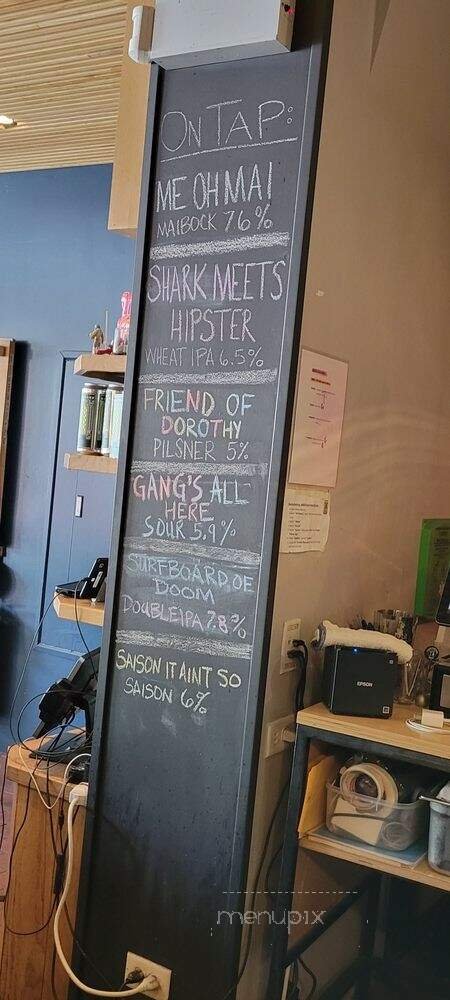 ON TAP:
ME OH MAI
MAIBOCK 7.6%
SHARK MEETS
HIPSTER
WHEAT IPA 6.5%
FRIEND OF
DOROTHY
PILSNER 5%
GANG'S ALL
HERE
SOUR 5.9%
SURFBOARD OF
DOOM
DOUBLE IPA 7.8%
SAISON IT AINT SO
SAISON 6%
EPSON
menupix